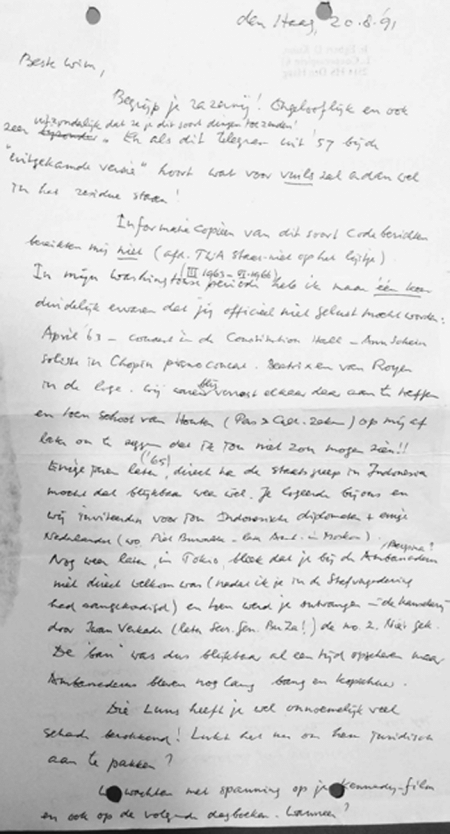 den Haag, 20.8.'91
Beste Wim,
Begrijp je razernij! Ongelooflijk en ook
uitzonderlijk dat ze je dit soort dingen toezenden!
zeer En als dit Telegram uit '57 bij de
"uitgekamde versie" hoort wat voor vuils zal er dan wel
in het residue staan!
Informatie copieën van dit soort Codeberichten
bereikten mij niet (afd. TWA staat niet op het lijstje).
(III 1963 - VI-1966)
In mijn Washingtonse periode heb ik maar één keer
duidelijk ervaren dat jij officieel niet gelust mocht worden:
April '63 - concert in de Constitution Hall - Ann Schein
soliste in Chopin pianoconcert. Beatrix en van Roijen
in de loge. Wij waren blij verrast elkaar daar aan te treffen
en toen schoot van Houten (Pers > Cult. zaken) op mij af
later om te zeggen dat ik jou niet zou mogen zien!!
('65)
Enige jaren later, direct na de staatsgreep in Indonesia
mocht dat blijkbaar weer wel. Je logeerde bij ons en
wij inviteerden voor jou Indonesische diplomaten + enige
Nederlanders (wo. Piet - later Amb. in Moskou).
Nog weer later, in Tokio, bleek dat je bij de Ambassadeur
niet direct welkom was (nadat ik je in de Stafvergadering
had aangekondigd) en toen werd je ontvangen - de kamer
door Iwan Verkade (later Secr. Gen. BuZa!) de no. 2. Niet gek.
De 'ban' was dus blijkbaar al een tijd opgeheven maar
Ambassadeurs bleven nog lang bang en kopschuw.
Die Luns heeft je wel onnoemelijk veel
schade berokkend! Lukt het nu om hem juridisch
aan te pakken?
We wachten met spanning op je Kennedy-film
en ook op de volgende dagboeken. Wanneer?